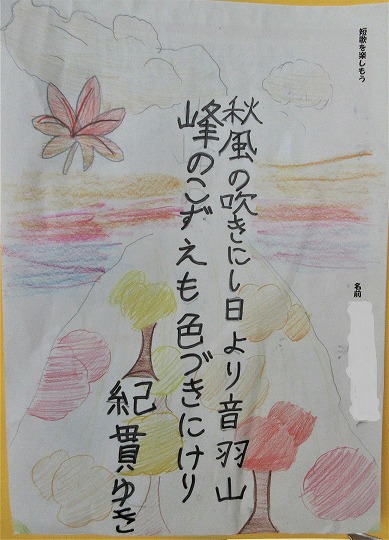 短歌を楽しもう
名前
秋風の吹きにし日より音羽山
峰のこずえも色づきにけり
紀貫ゆき